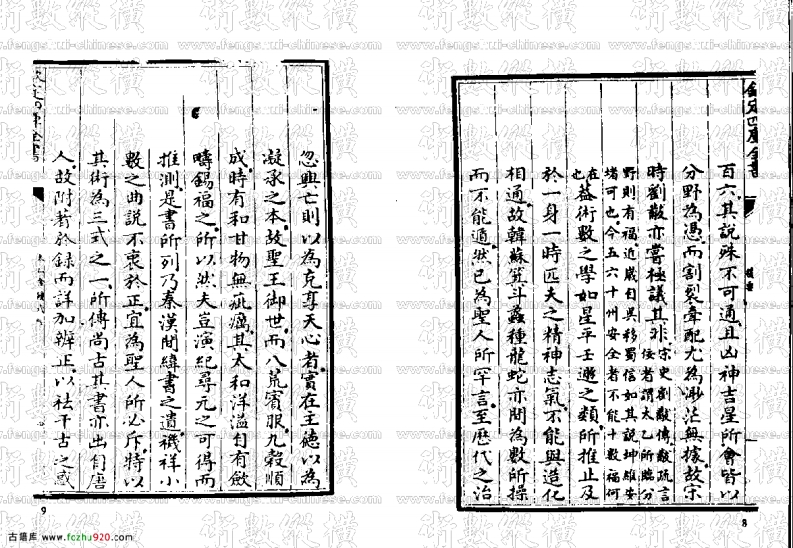 欽定四庫全書
百六其說殊不可通且凶神吉星所會皆以
分野為憑而割裂牽配尤為渺茫無據故宋
時劉敞亦嘗極議其非宋史劉敞傳敞疏言
佞者謂太乙所臨分
野則有福近歲自吳移蜀信如其說坤維安
堵可也今五六十州安全者不能十數福何
在也
蓋術數之學如星平壬遯之類所推止及
於一身一時匹夫之精神志氣不能與造化
相通故韓蘇箕斗蟲種龍蛇亦間為數所操
而不能遁然已為聖人所罕言至歷代之治
8
忽興亡則以為克享天心者實在主德以為
凝承之本故聖王御世而八荒賓服九穀順
成時有和甘物無疵癘其太和洋溢自有斂
疇錫福之所以然夫豈演紀尋元之可得而
推測是書所列乃秦漢間緯書之遺禨祥小
數之曲說不衷於正宜為聖人所必斥特以
其術為三式之一所傳尚古其書亦出自唐
人故附著於錄而詳加辨正以袪千古之惑
9
術數縱橫
fengs.ui-chinese.com
古籍库 www.fczhu920.com